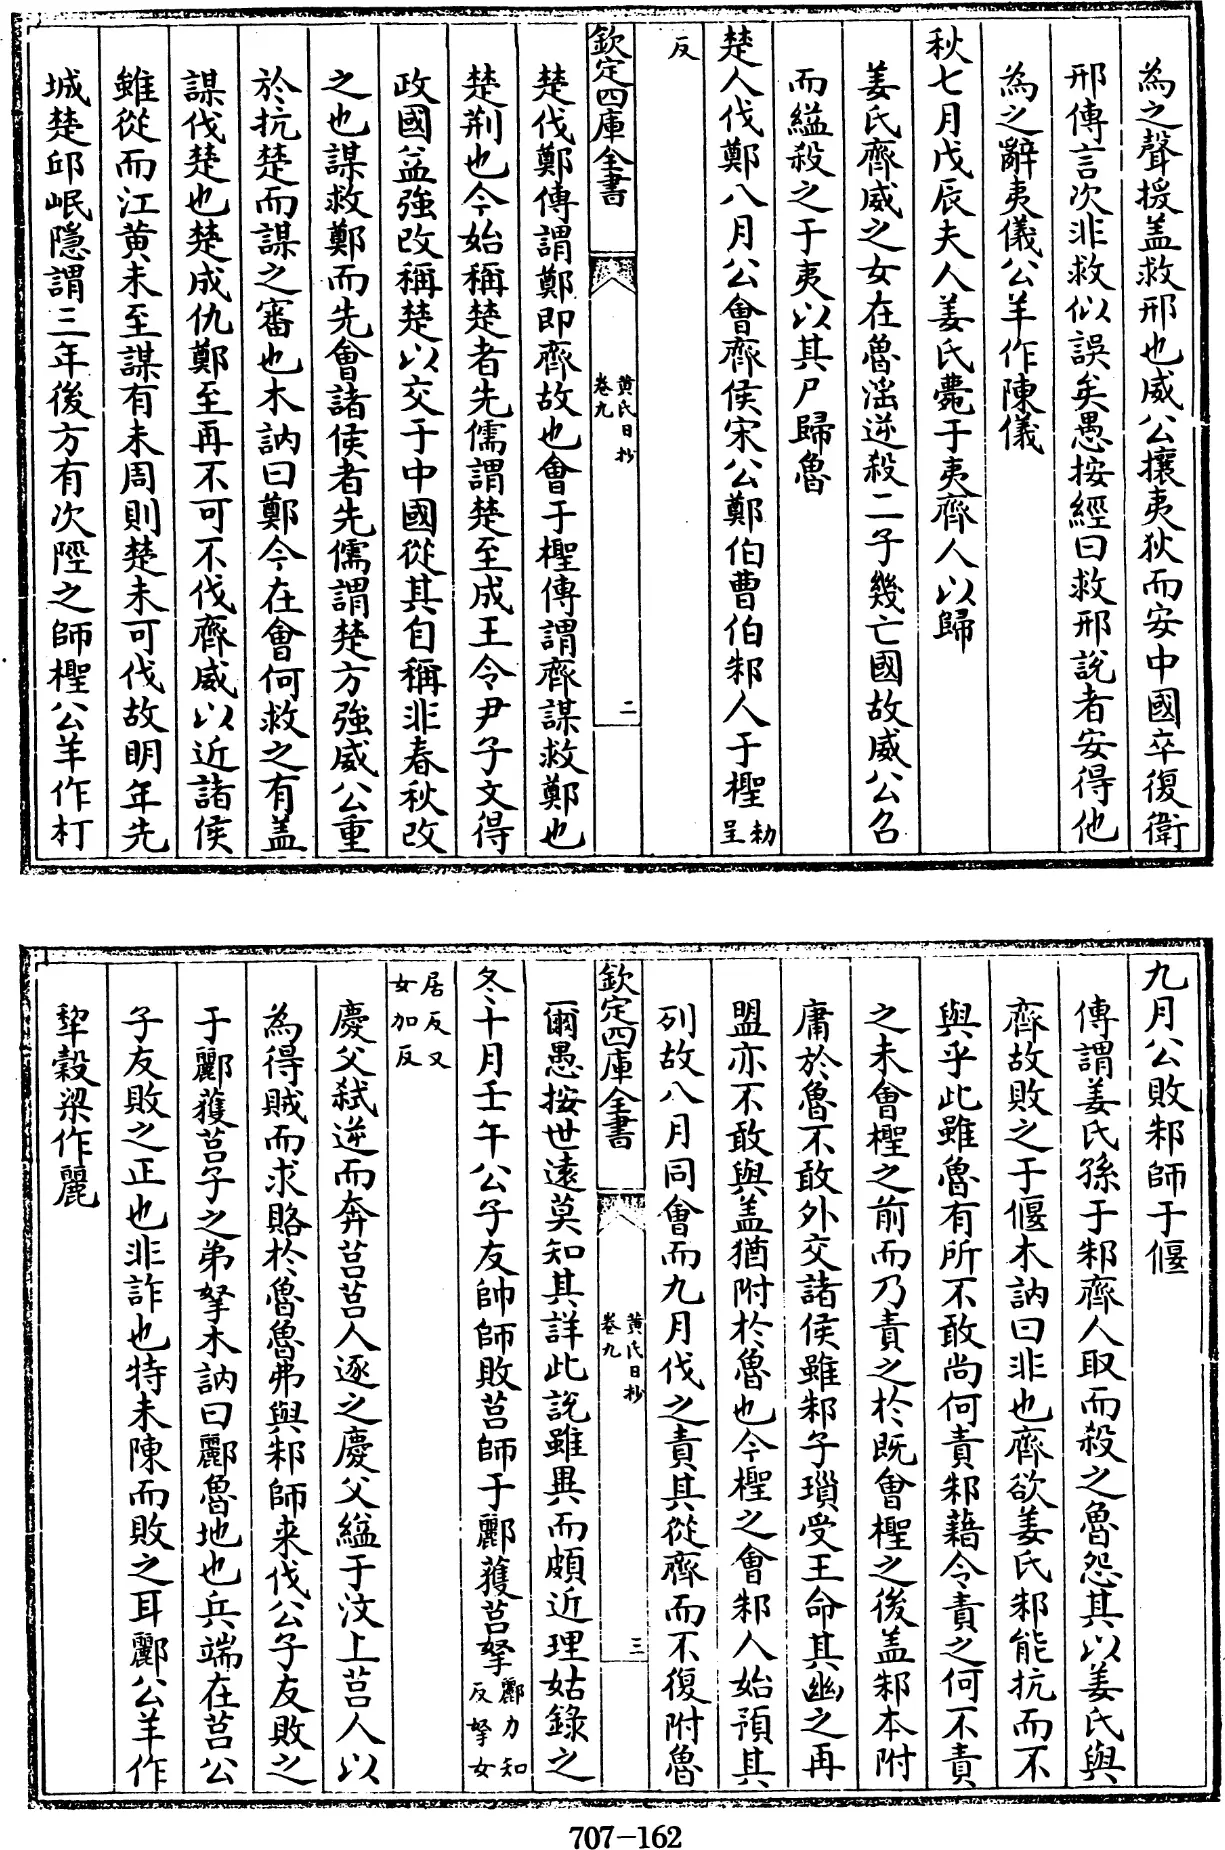 為之聲援盖救邢也威公攘夷狄而安中國卒復衛
邢傳言次非救似誤矣愚按經曰救邢説者安得他
為之辭夷儀公羊作陳儀
秋七月戊辰夫人姜氏薨于夷齊人以歸
姜氏齊威之女在魯淫逆殺二子幾亡國故威公召
而縊殺之于夷以其尸歸魯
楚人伐鄭八月公會齊侯宋公鄭伯曹伯邾人于檉勑
呈
反
欽定四庫全書
黄氏日抄
卷九
二
楚伐鄭傳謂鄭即齊故也會于檉傳謂齊謀救鄭也
楚荆也今始稱楚者先儒謂楚至成王令尹子文得
政國益強改稱楚以交于中國從其自稱非春秋改
之也謀救鄭而先會諸侯者先儒謂楚方強威公重
於抗楚而謀之審也木訥曰鄭今在會何救之有盖
謀伐楚也楚成仇鄭至再不可不伐齊威以近諸侯
雖從而江黄未至謀有未周則楚未可伐故明年先
城楚邱岷隱謂三年後方有次陘之師檉公羊作朾
九月公敗邾師于偃
傳謂姜氏孫于邾齊人取而殺之魯怨其以姜氏與
齊故敗之于偃木訥曰非也齊欲姜氏邾能抗而不
與乎此雖魯有所不敢尚何責邾藉令責之何不責
之未會檉之前而乃責之於既會檉之後盖邾本附
庸於魯不敢外交諸侯雖邾子瑣受王命其幽之再
盟亦不敢與盖猶附於魯也今檉之會邾人始預其
列故八月同會而九月伐之責其從齊而不復附魯
欽定四庫全書
黄氏日抄
卷九
三
爾愚按世遠莫知其詳此説雖異而頗近理姑錄之
冬十月壬午公子友帥師敗莒師于酈獲莒拏酈力知
反拏女
居反又
女加反
慶父弑逆而奔莒莒人逐之慶父縊于汶上莒人以
為得賊而求賂於魯魯弗與邾師来伐公子友敗之
于酈獲莒子之弟拏木訥曰酈魯地也兵端在莒公
子友敗之正也非詐也特未陳而敗之耳酈公羊作
犂穀梁作麗
707-162